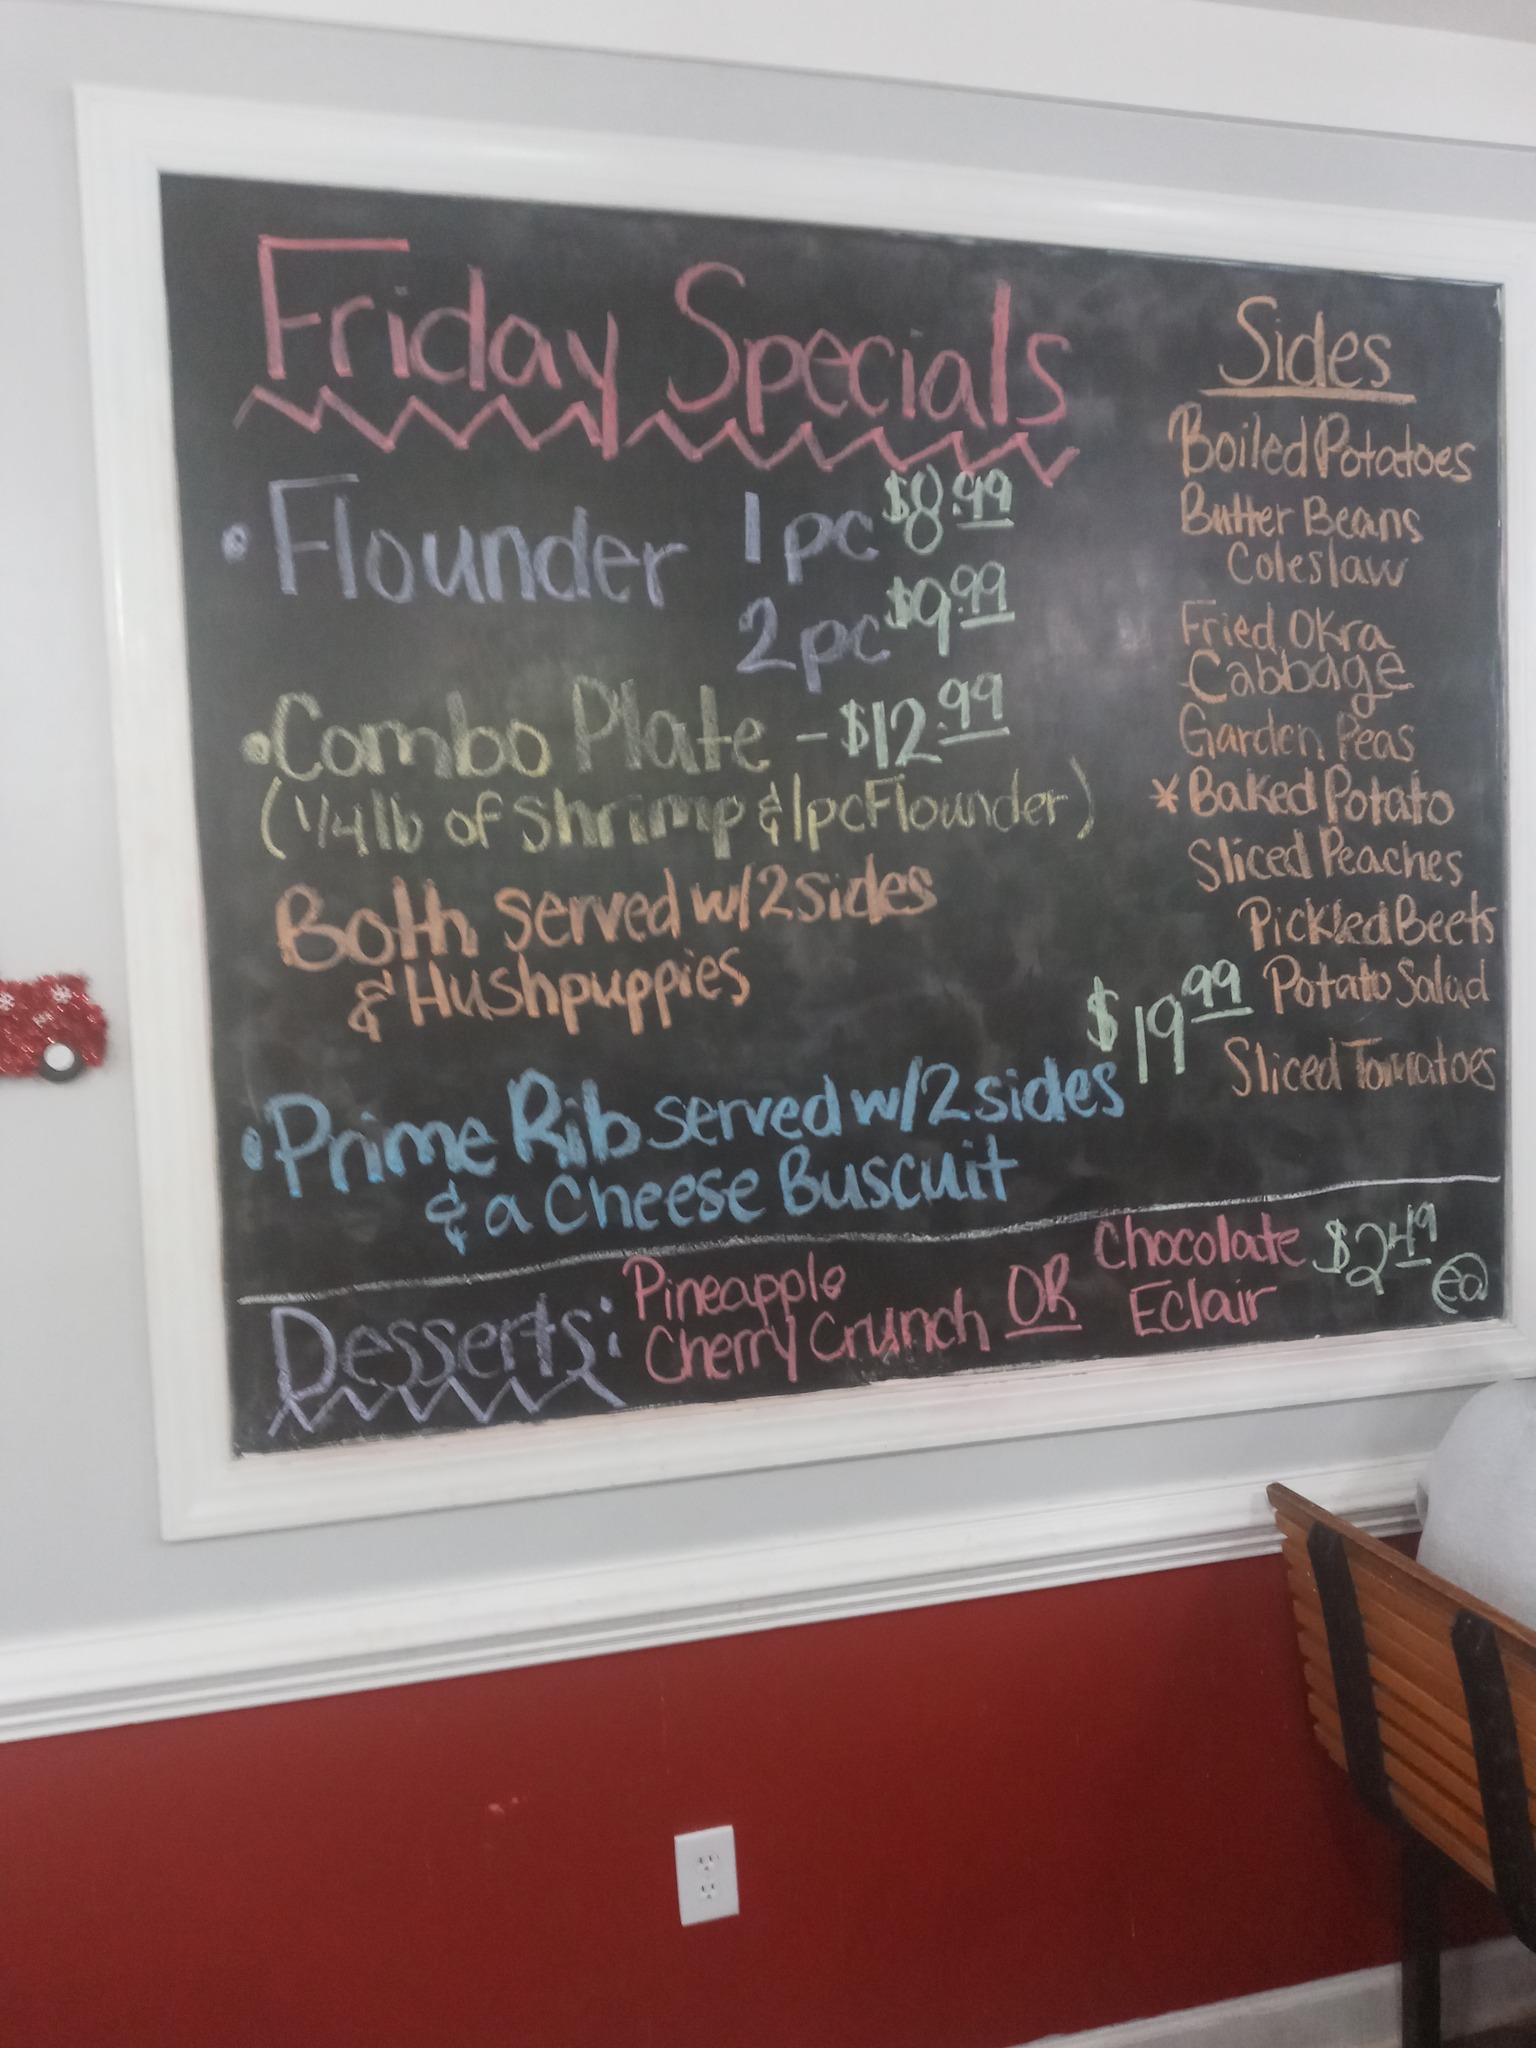 Friday Specials
• Flounder 1pc $8.99
2pc $9.99
• Combo Plate - $12.99
(1/4 lb of Shrimp & 1pc Flounder)
Both served w/2 sides
& Hushpuppies
$19.99
• Prime Rib served w/2 sides
& a Cheese Buscuit
Sides
Boiled Potatoes
Butter Beans
Coleslaw
Fried Okra
Cabbage
Garden Peas
* Baked Potato
Sliced Peaches
Pickled Beets
Potato Salad
Sliced Tomatoes
Desserts: Pineapple
Cherry Crunch OR Chocolate
Eclair $2.49
ea